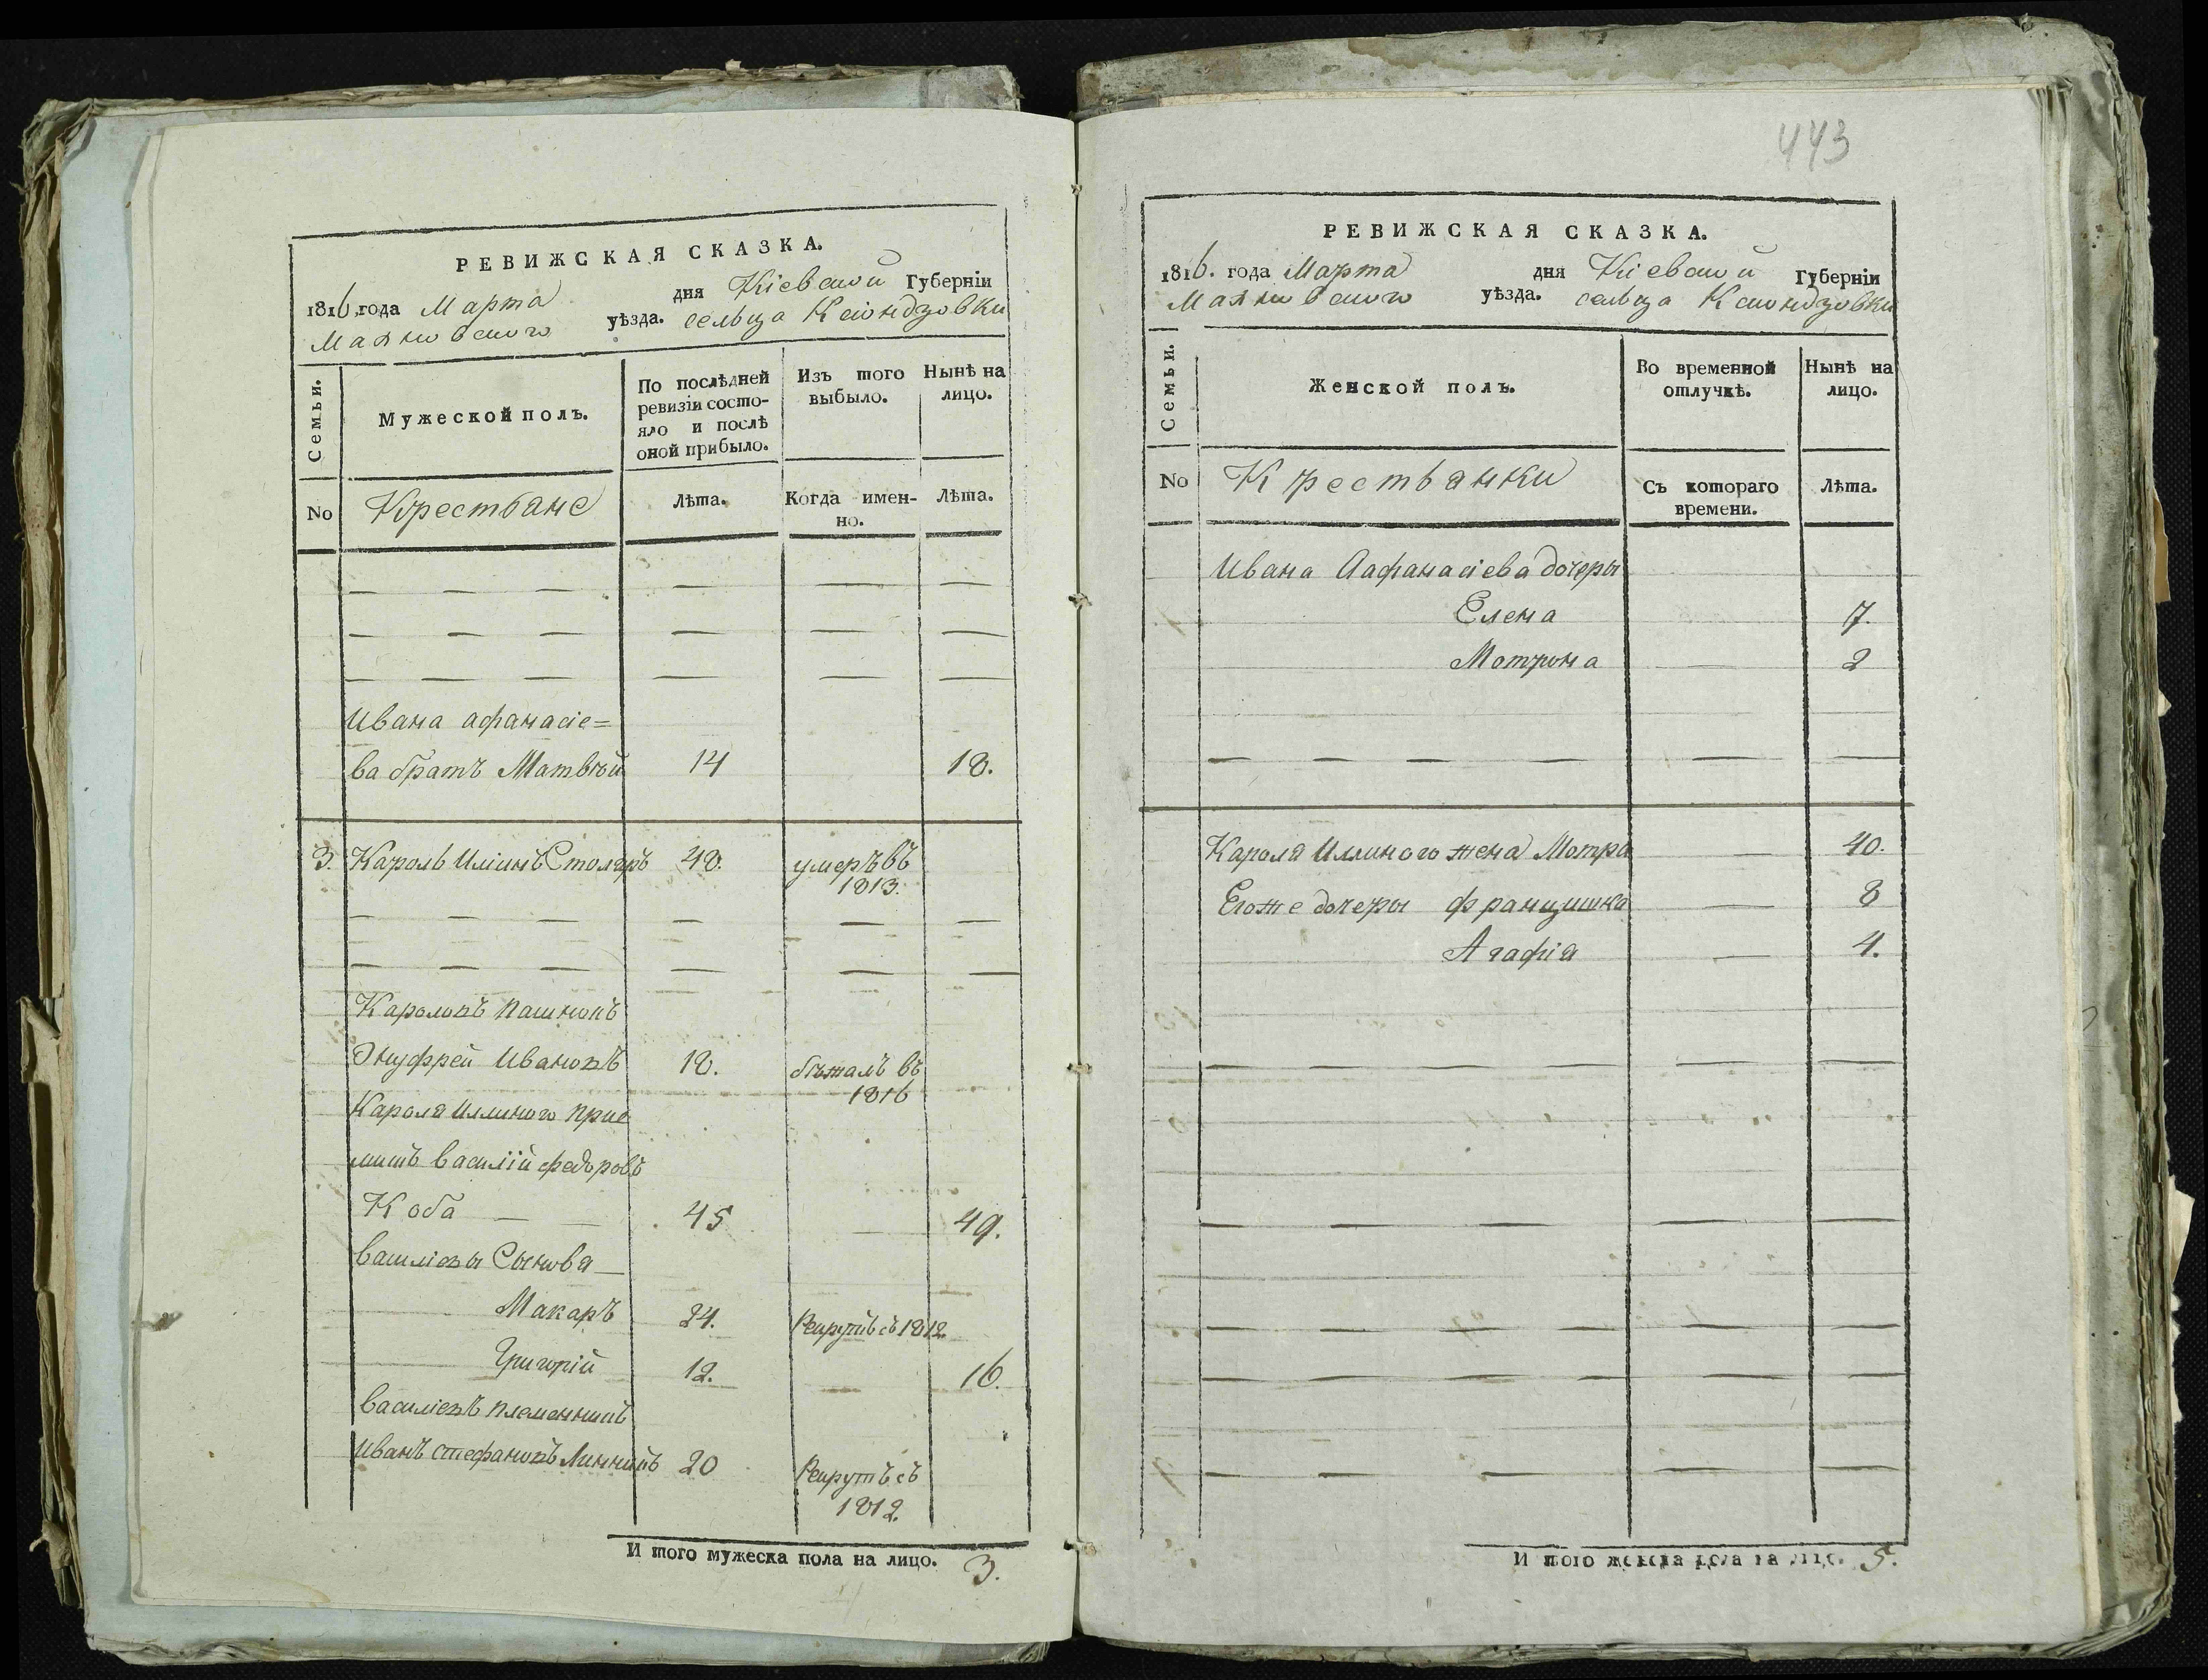 РЕВИЖСКАЯ СКАЗКА.
1816 года Марта дня Кіевской Губерніи
Махновского уѣзда. сельца Ксіондзовки
Семьи. Мужеской полъ. По послѣдней ревизіи состояло и послѣ оной прибыло. Изъ того выбыло. Нынѣ на лицо.
No Крестьяне Лѣта. Когда именно. Лѣта.
Ивана афанасіе=
ва братъ Матвѣй 14 18.
3. Кароль Иліинъ Столяръ 48. умеръ въ
1813.
Каролювъ пасинокъ
Онуфрей Ивановъ 18. бѣжалъ въ
1816
Кароля Иллиного прие
мишъ василій федоровъ
Коба 45 49.
василіевы Сынова
Макаръ 24. Рекрутъ съ 1812.
Григорій 12. 16.
василіевъ племенникъ
Иванъ Стефановъ 20 Рекрутъ съ
1812.
И того мужеска пола на лицо. 3.
443
РЕВИЖСКАЯ СКАЗКА.
1816. года Марта дня Кіевской Губерніи
Махновского уѣзда. сельца Ксіондзовки
Семьи. Женской полъ. Во временной отлучкѣ. Нынѣ на лицо.
No Крестьянки Съ котораго времени. Лѣта.
Ивана Аафанасіева дочеры
Елена 7.
Мотрона 2
Кароля Иллиного жена Мотра 40.
Егоже дочеры францишка 8
Агафія 4.
И того женска пола на лицо. 5.